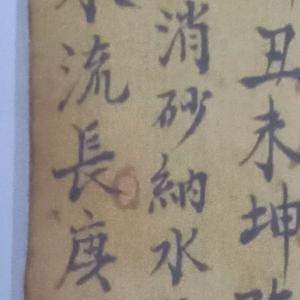 丑未坤
消砂納水
流長庚